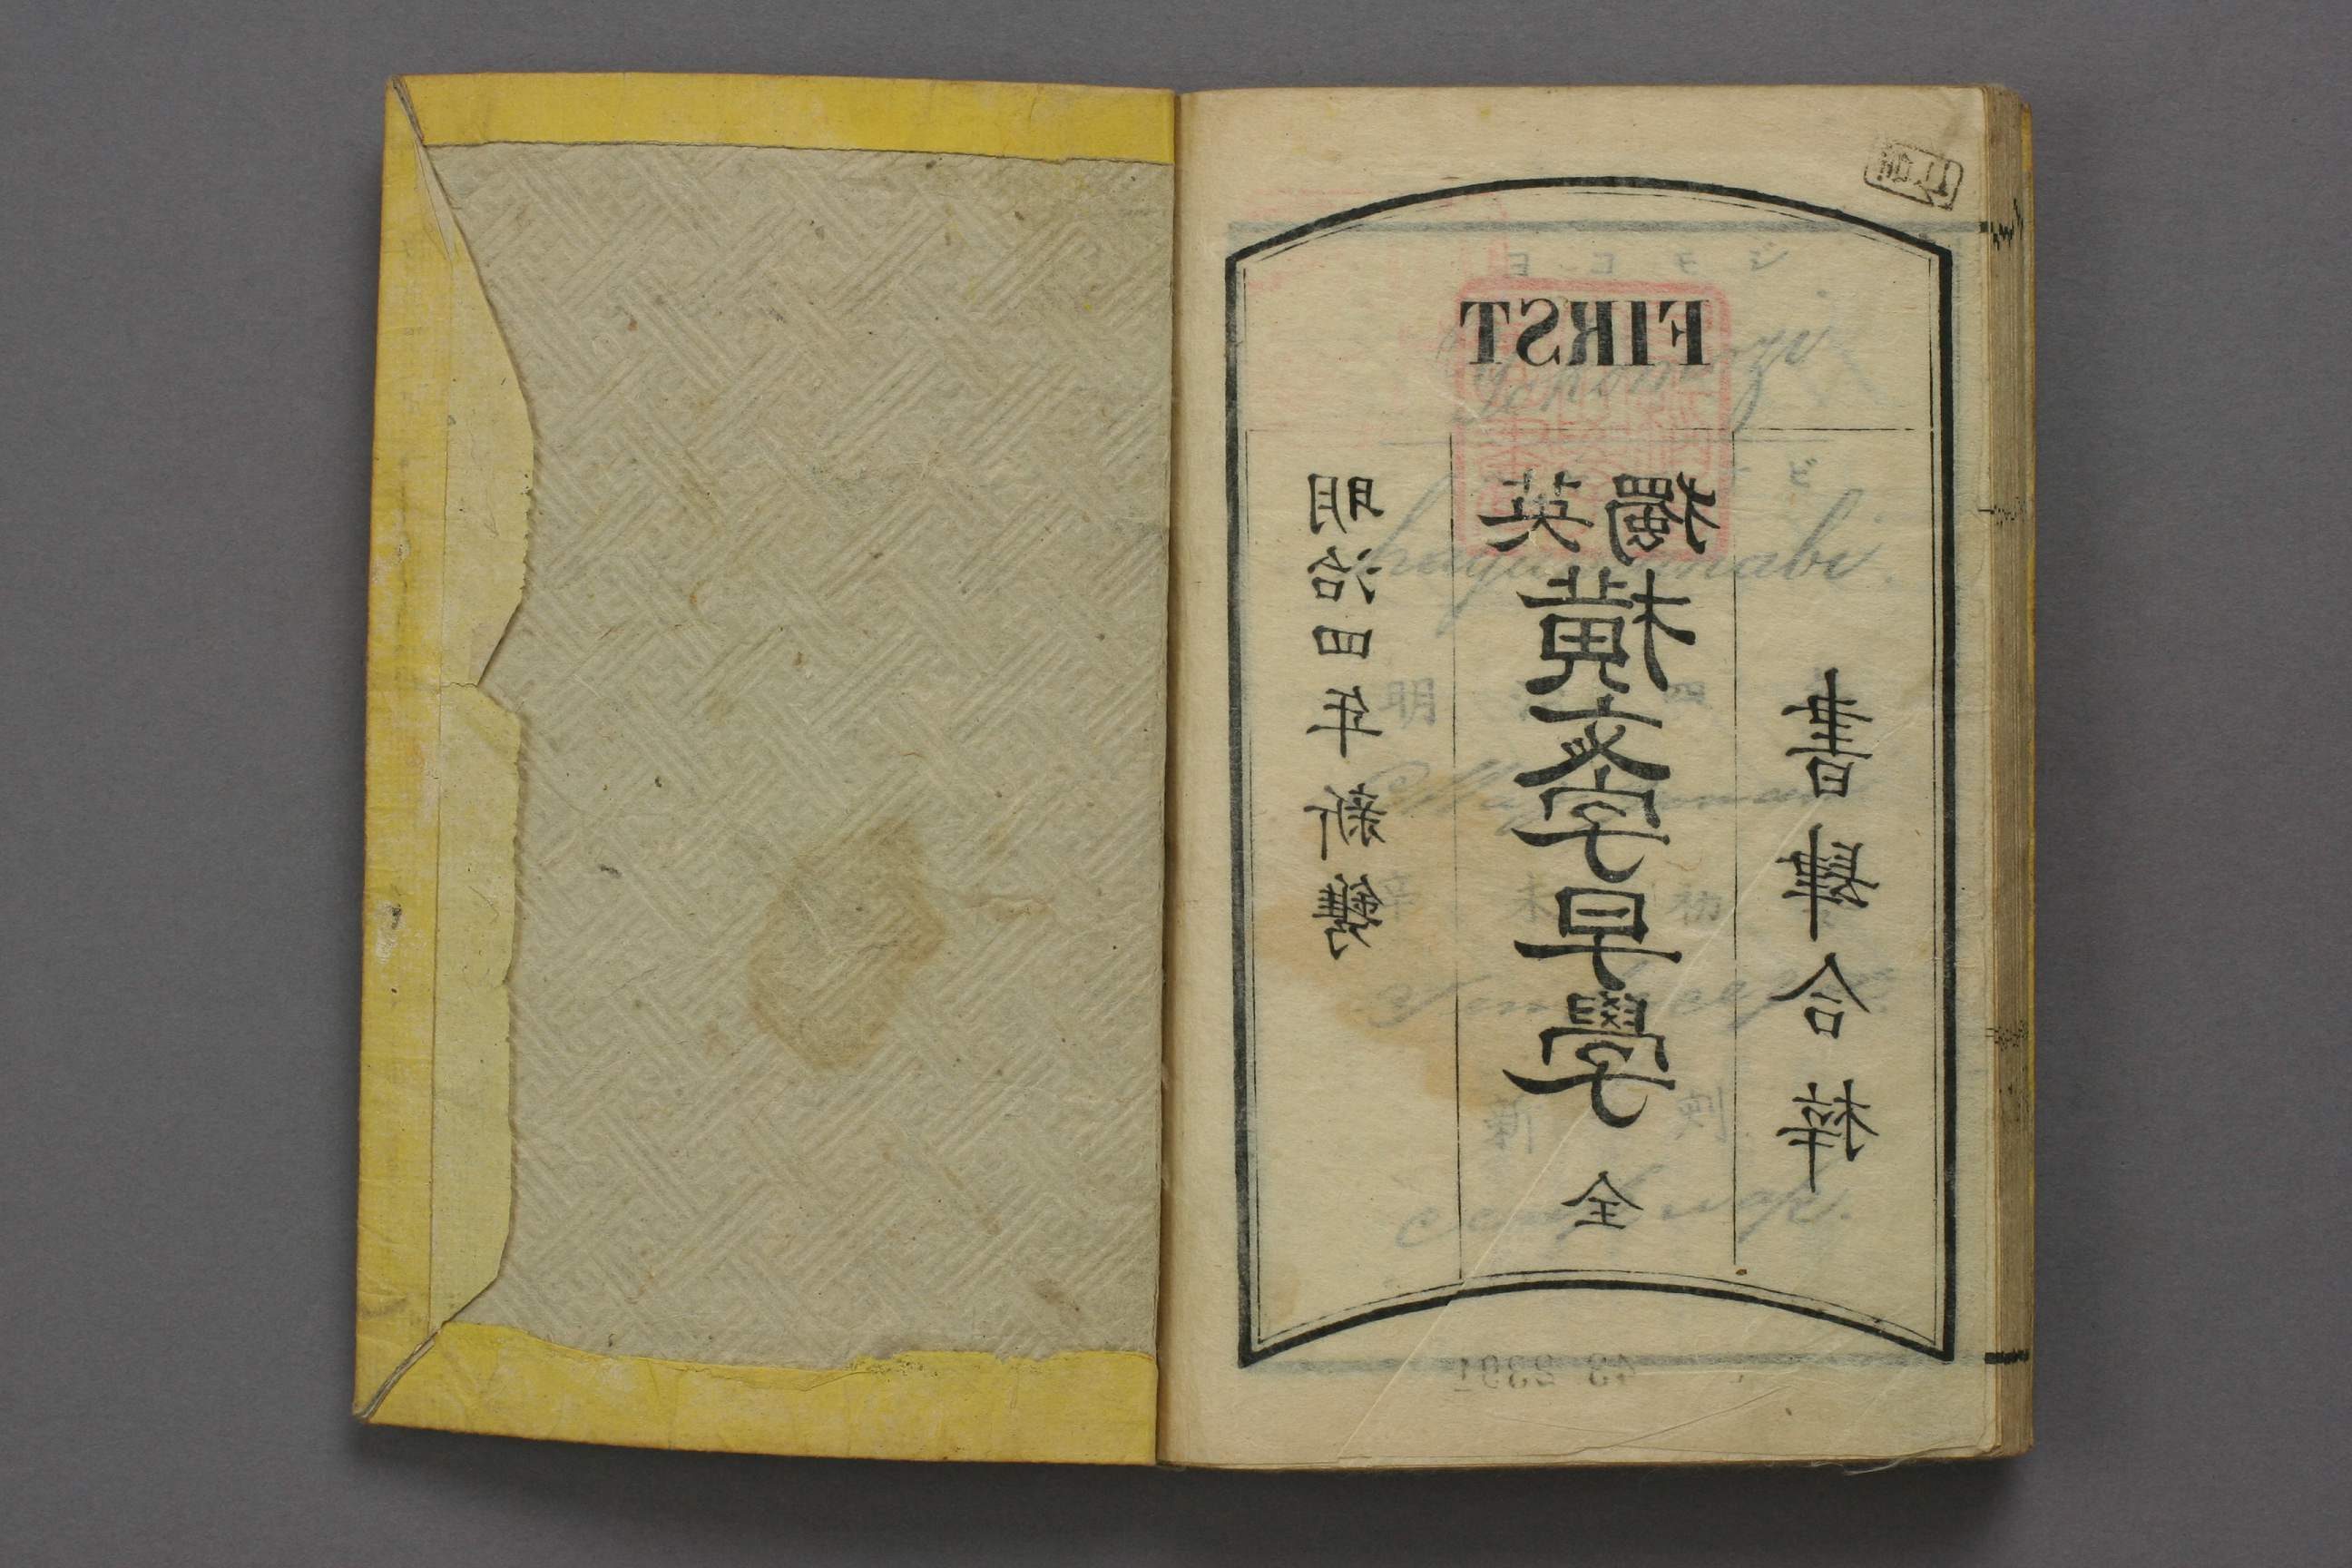 FIRST
明治四年新鐫
英獨
横文字早學
全
書肆合梓
hayamanabi.